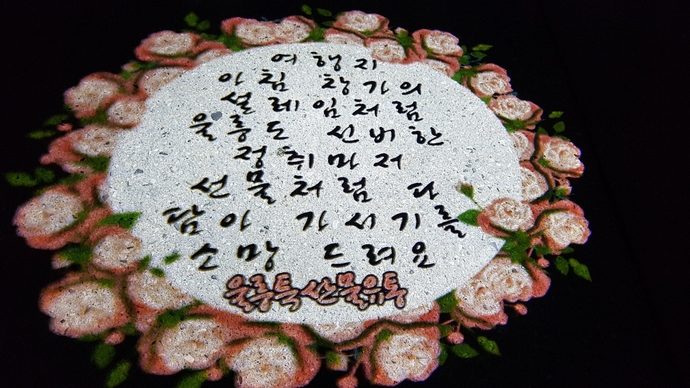 여행지
아침 창가의
설레임처럼
울릉도 선버한
정취마저
선물처럼 다
담아 가시기를
소망 드려요
울릉특산물유통